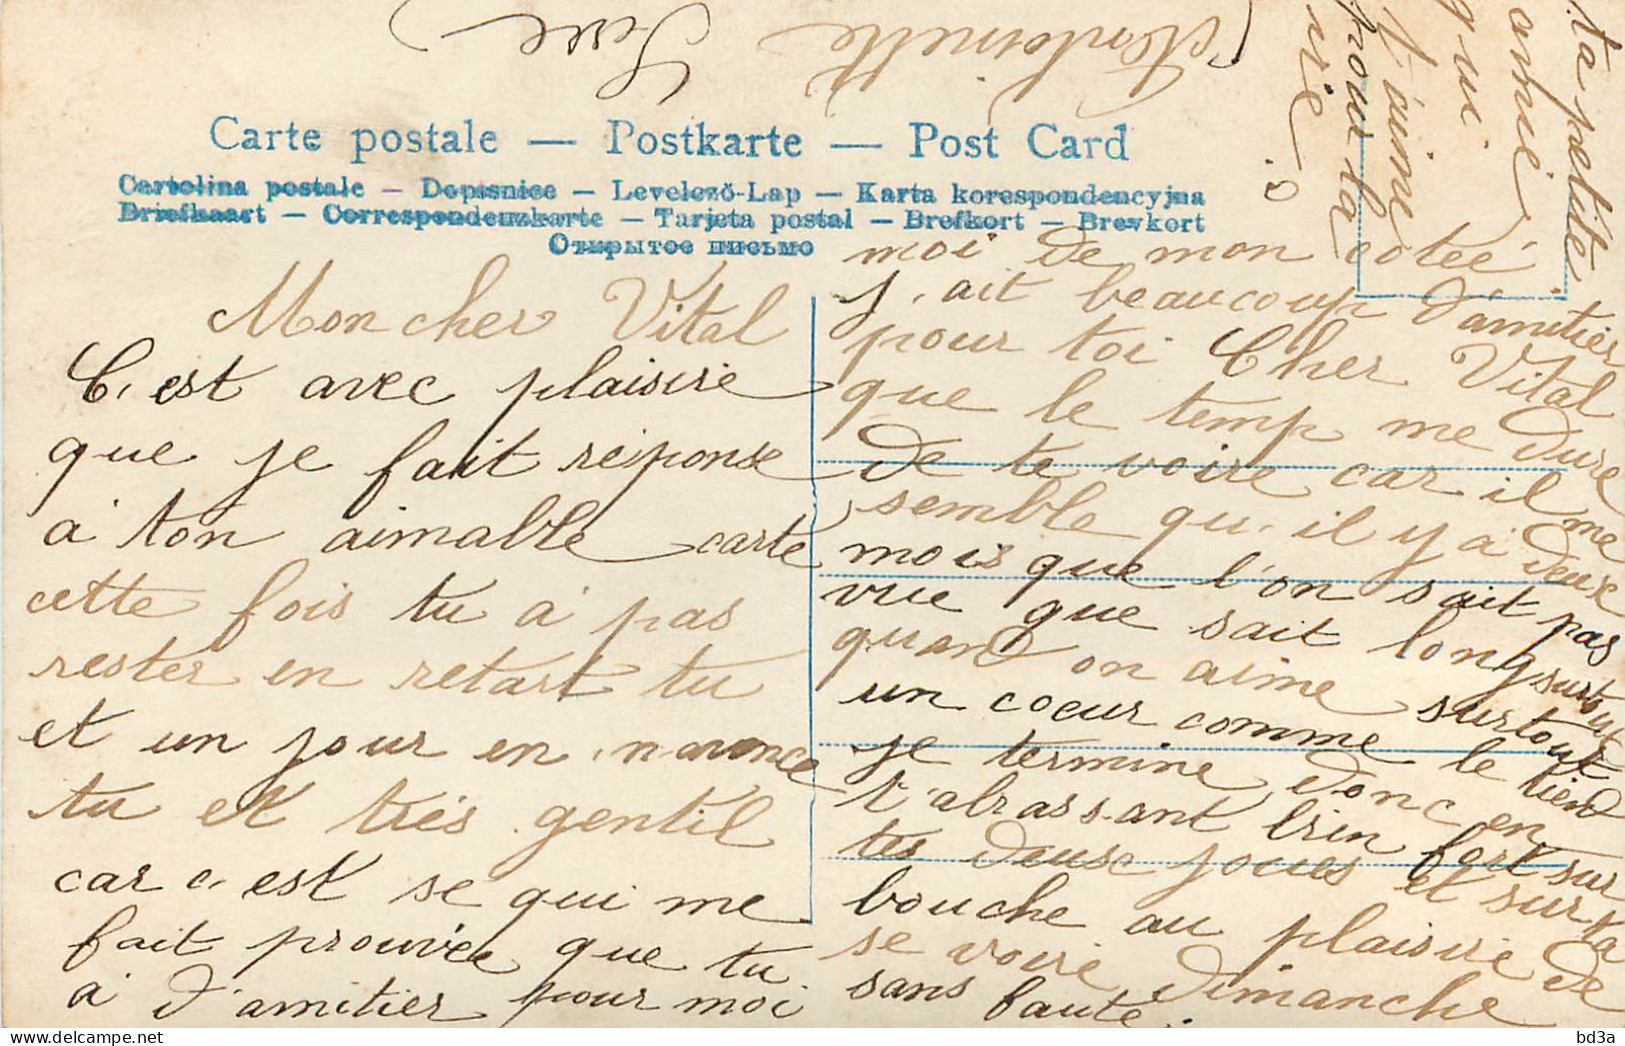 Carte postale — Postkarte — Post Card
Cartolina postale – Dopisnice – Levelező-Lap – Karta korespondencyjna
Briefkaart – Correspondenzkarte – Tarjeta postal – Brefkort – Brevkort
Открытое письмо
Mon cher Vital
C, est avec plaisire
que je fait réiponse
a ton aimable carte
cette fois tu a pas
rester en retart tu
et un jour en
tu et très gentil
car c, est se qui me
fait prouvée que tu
a d'amitier pour moi
moi de mon cotée
j, ait beaucoup d'amitier
pour toi Cher Vital
que le temp me dure
de te voire car il me
semble qu, il y a deux
mois que l'on sait pas
vue que sait long surtout
quand on aime surtout
un coeur comme le tien
je termine donc en
t'abrassant bien fort sur
tes deux joues et sur ta
bouche au plaisire de
se voire dimanche
sans faute.
ta petite
amie
qui
t'aime
pour la
vie
Antoinette
bd3a